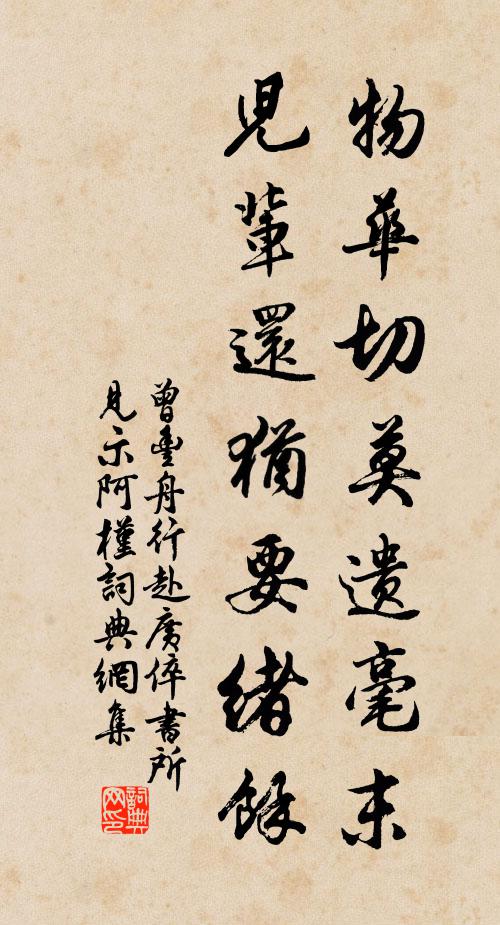 物華切莫遺毫末
兒輩還猶要緒餘
曾豐舟行赴廣倅書所
見示阿槿詞典網集
詞典網印